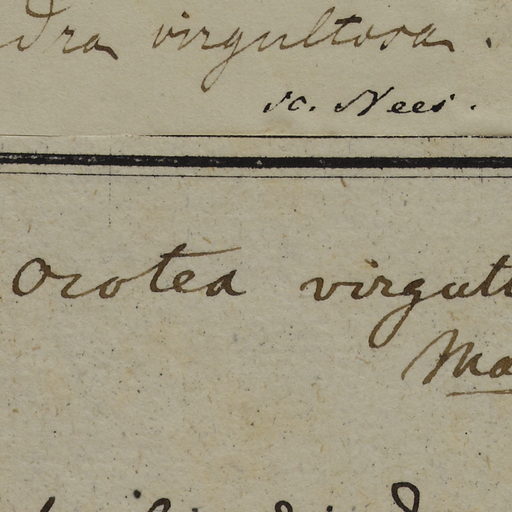 dra virgultosa.
sc. Nees.
Ocotea virgult
Ma